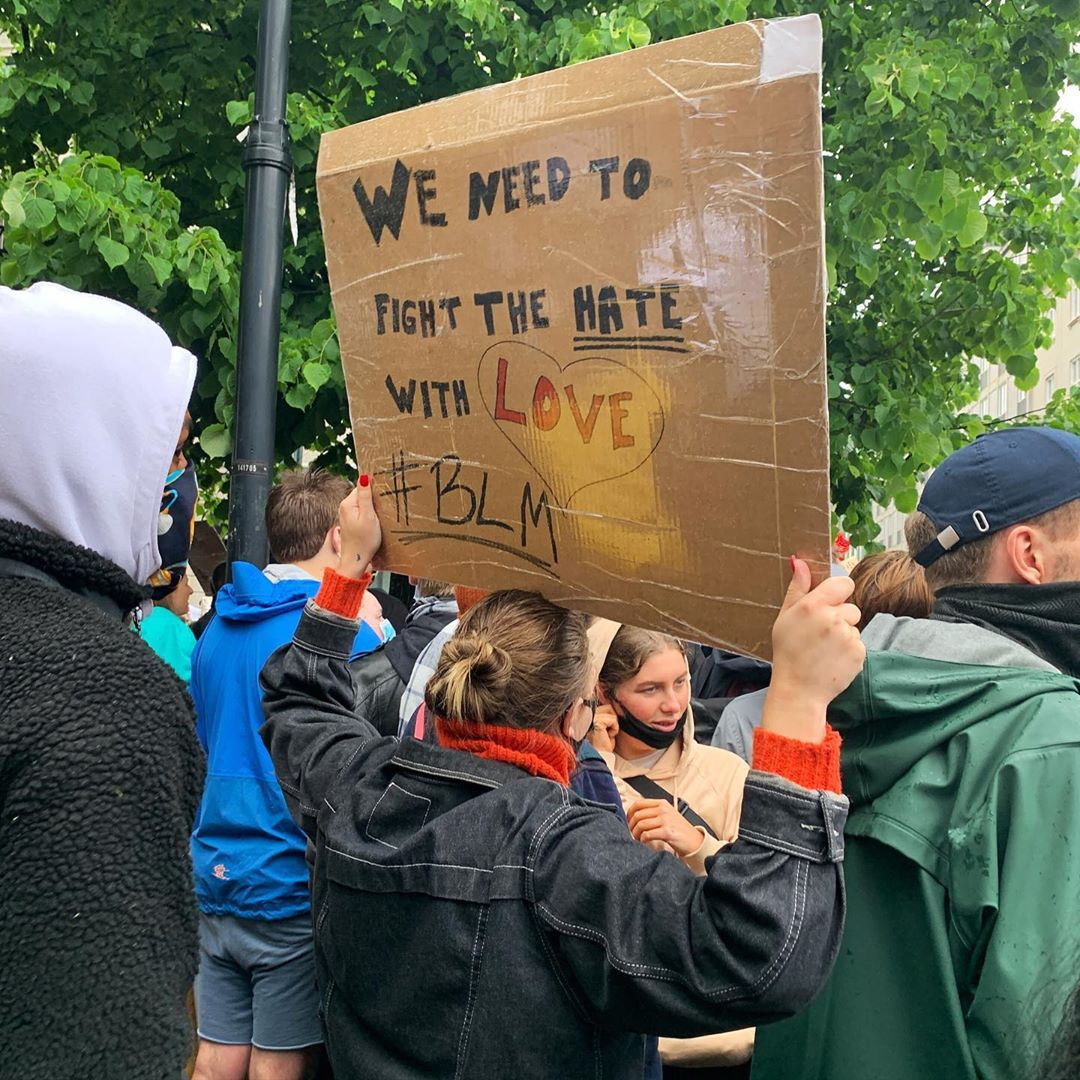 WE NEED TO
FIGHT THE HATE
WITH LOVE
#BLM
141705